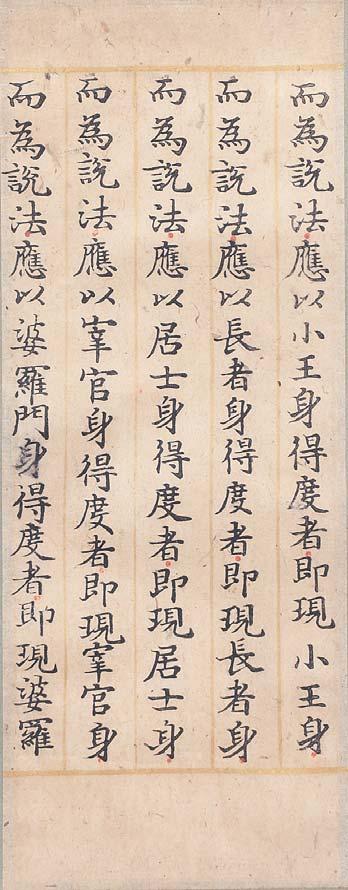 而為說法應以小王身得度者即現小王身
而為說法應以長者身得度者即現長者身
而為說法應以居士身得度者即現居士身
而為說法應以宰官身得度者即現宰官身
而為說法應以婆羅門身得度者即現婆羅